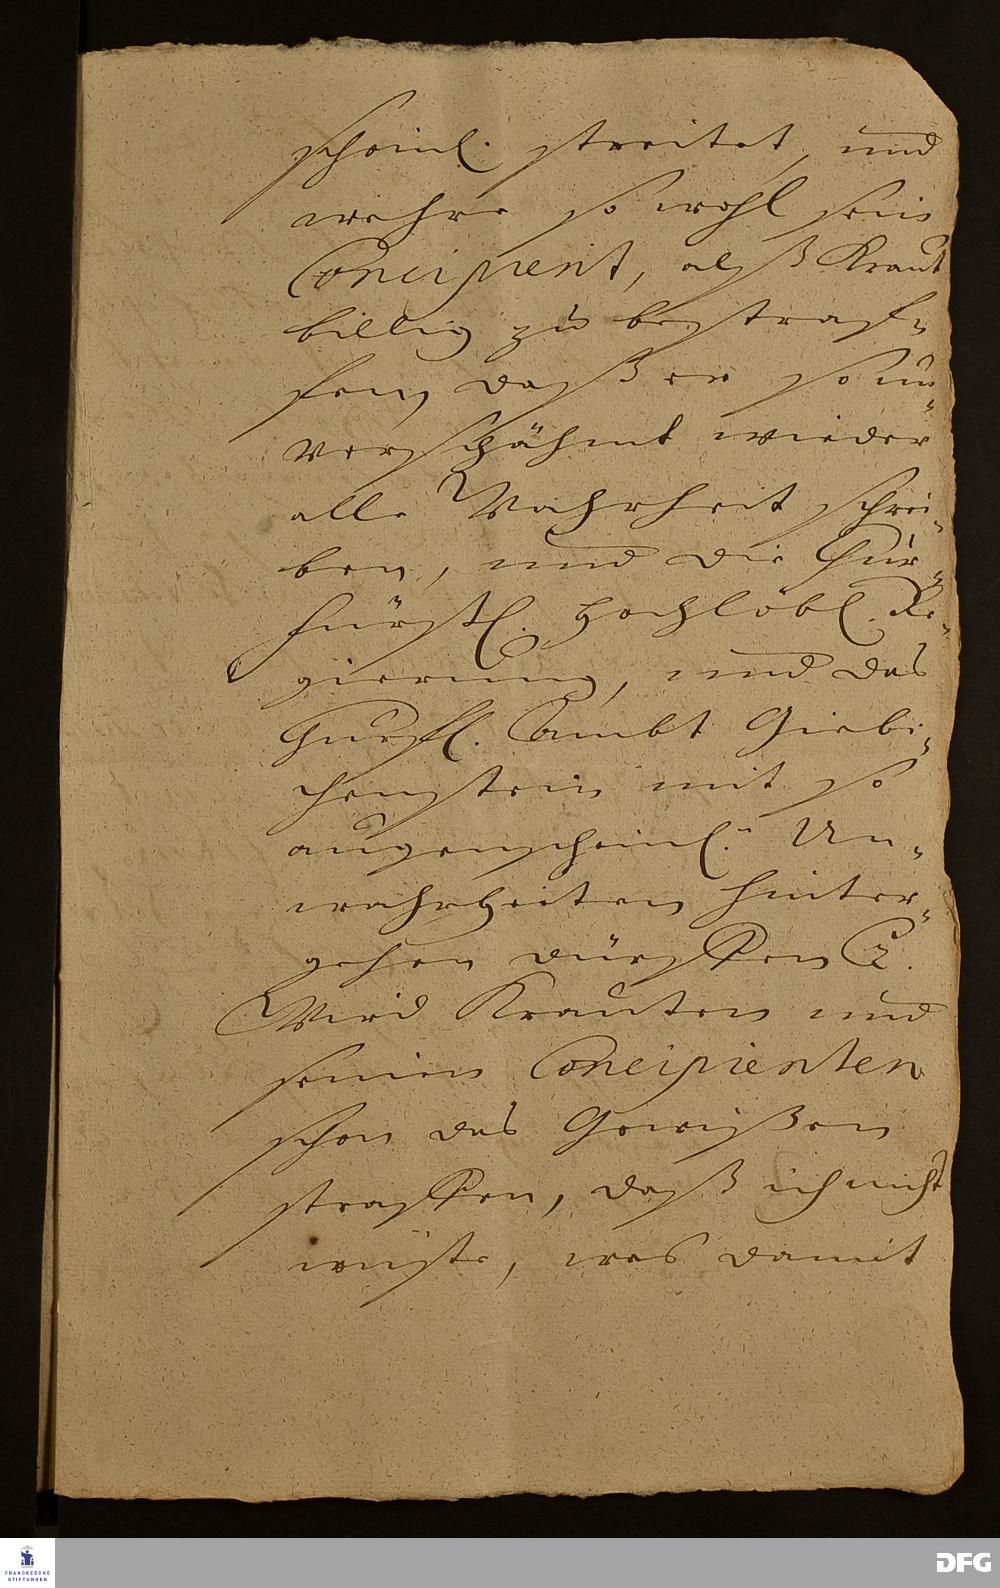 scheinl. streitet, und
wehre so wohl sein
Concipient, alß Kraut
billig zu bestraf-
fen, daß er so un-
verschähmt wieder
alle Wahrheit schrei-
ben, und die Chur-
fürstl. Hochlöbl. Re-
gierung, und das
Churfl. Ambt Giebi-
chenstein mit so
augenscheinl. Un-
wahrheiten hinter-
gehen dürffen
Wird Krauten und
seinen Concipienten
schon das Gewißen
straffen, daß ich nicht
wüste, was damit
FRANCKESCHE
STIFTUNGEN
DFG